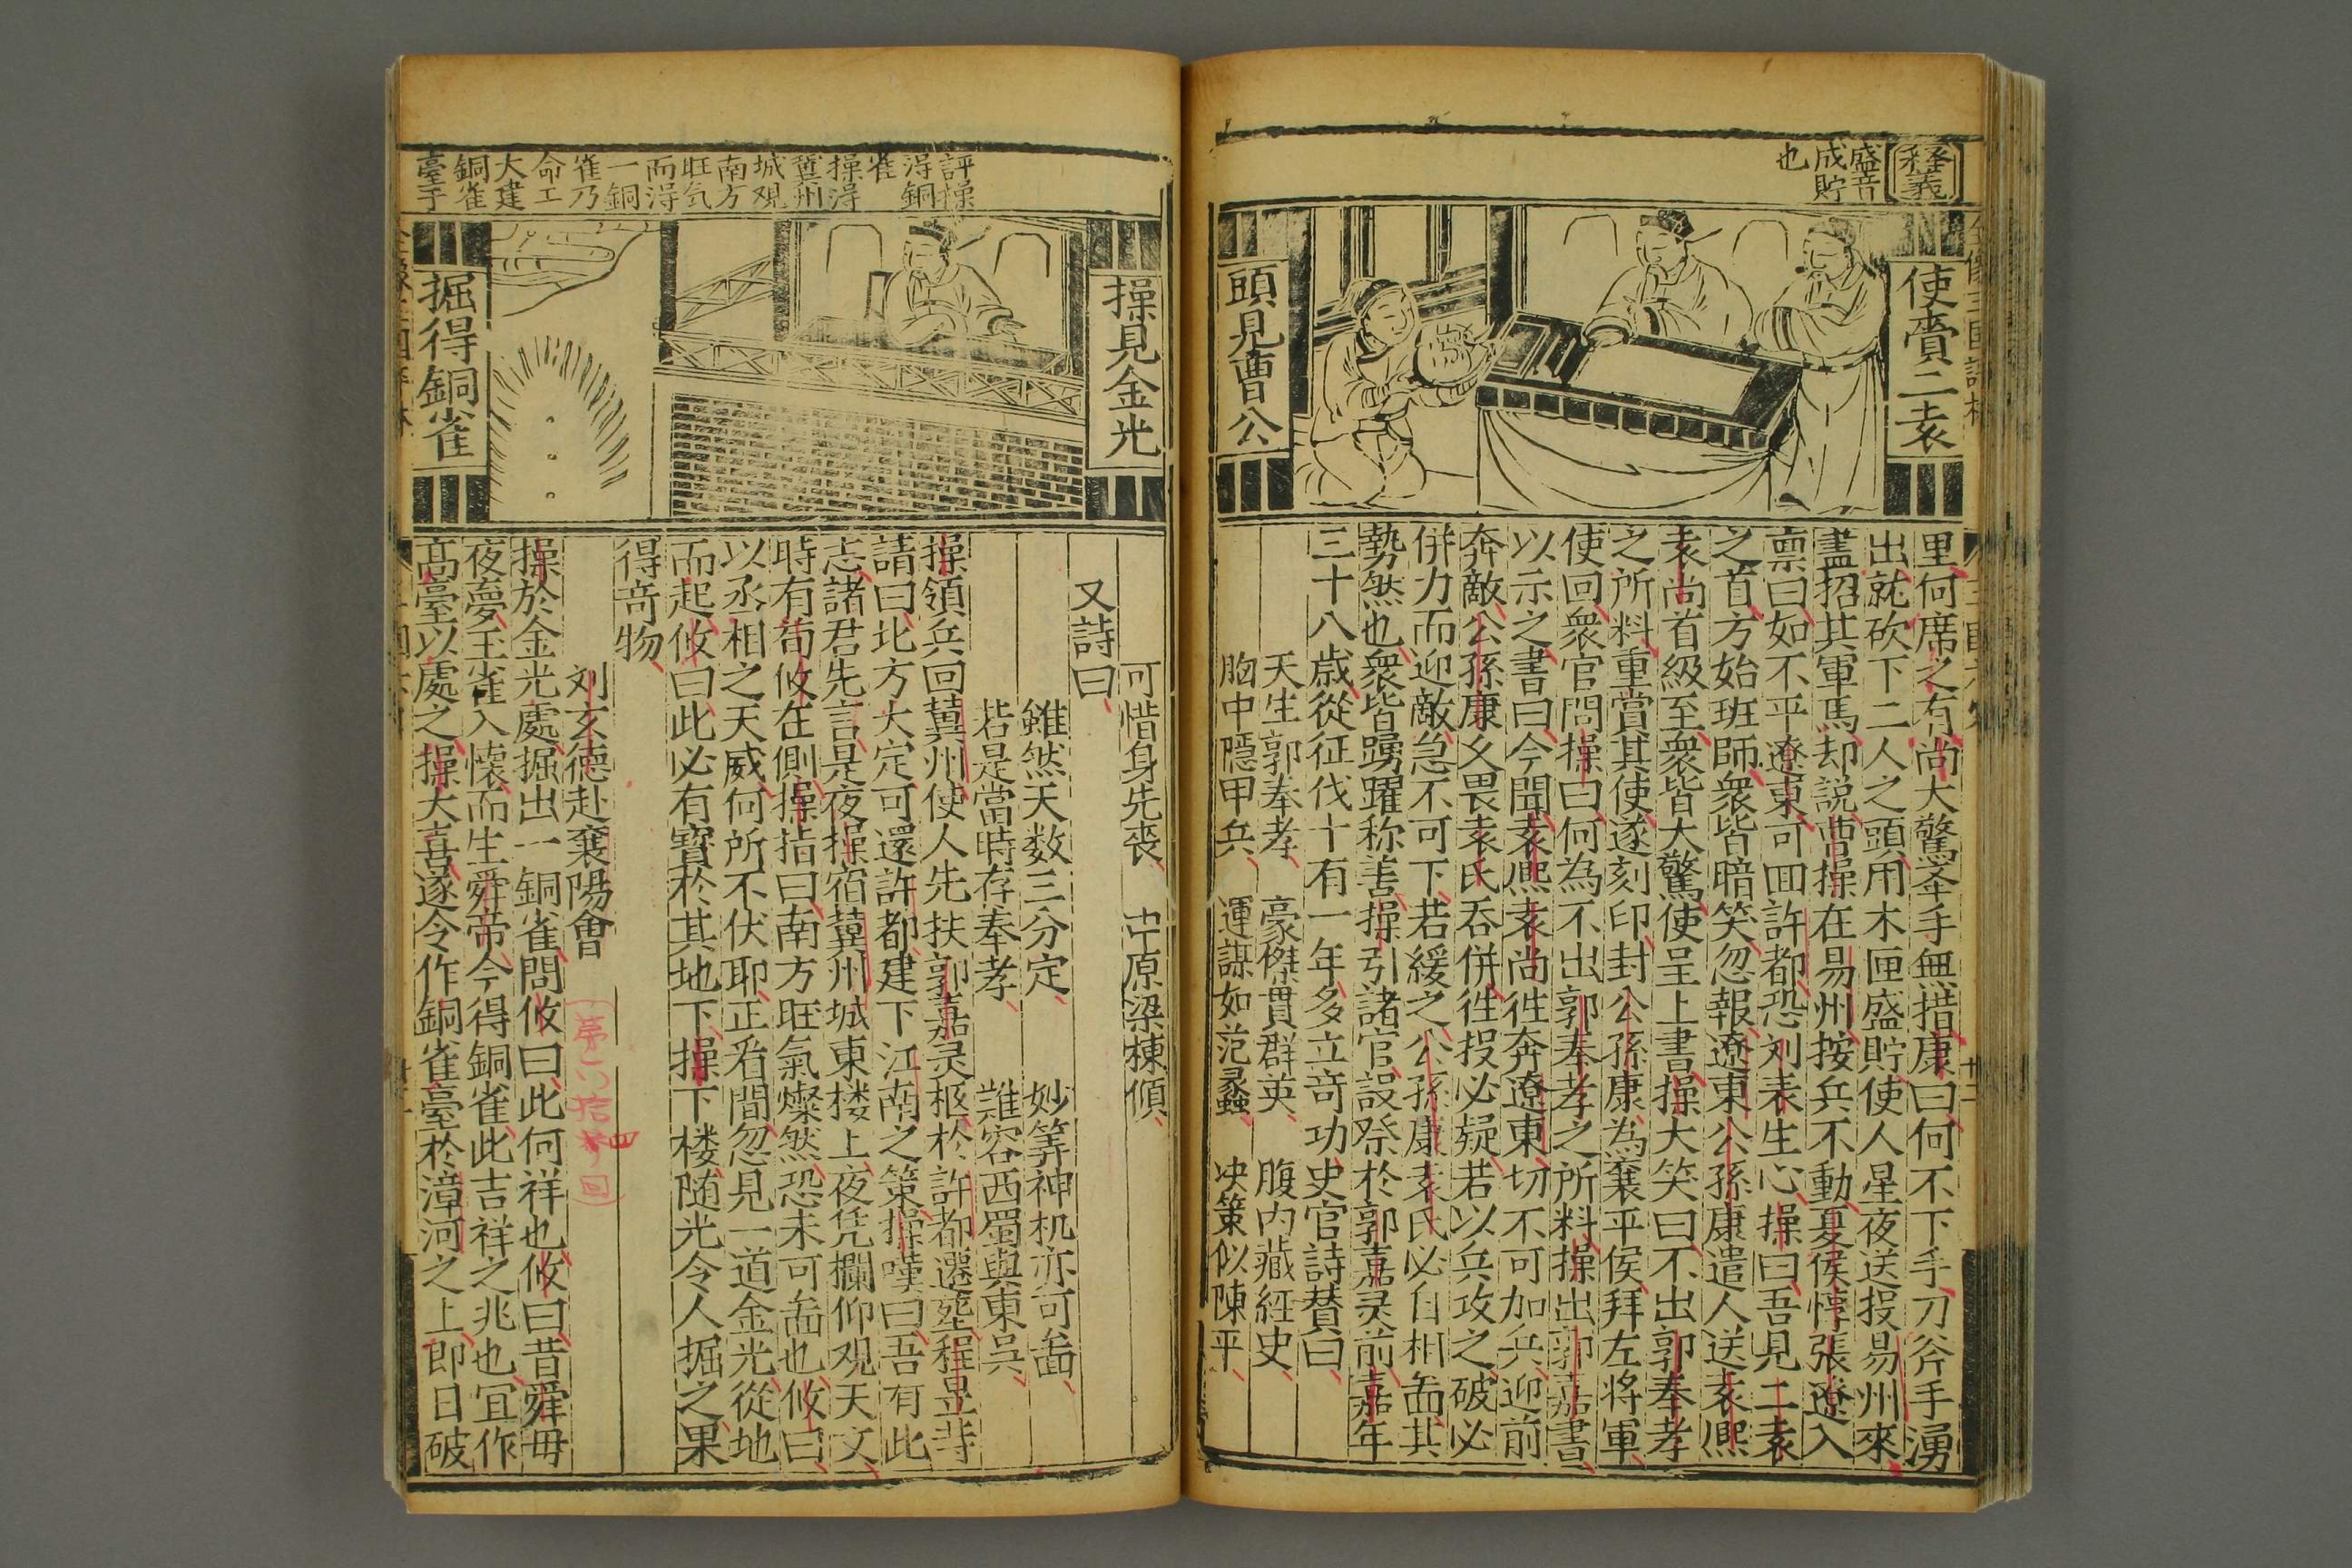 释義
盛音
成貯
也
使賫二袁
頭見曹公
里何席之有尚大驚牵手無措康曰何不下手刀斧手湧
出就砍下二人之頭用木匣盛貯使人星夜送投易州來
盡招其軍馬却説曹操在易州按兵不動夏侯惇張遼入
禀曰如不平遼東可回許都恐刘表生心操曰吾見二袁
之首方始班師衆皆暗笑忽報遼東公孫康遣人送袁熙
袁尚首級至衆皆大驚使呈上書操大笑曰不出郭奉孝
之所料重賞其使遂刻印封公孫康為襄平侯拜左将軍
使回衆官問操曰何為不出郭奉孝之所料操出郭嘉書
以示之書曰今聞袁熙袁尚徃奔遼東切不可加兵迎前
奔敵公孫康久畏袁氏吞併徃投必疑若以兵攻之破必
併力而迎敵急不可下若緩之公孫康袁氏必自相啚其
勢然也衆皆踴躍称善操引諸官設祭於郭嘉灵前嘉年
三十八歳從征伐十有一年多立竒功史官詩賛曰
天生郭奉孝 豪傑貫群英 腹内藏経史
胸中隱甲兵 運謀如范蠡 决策似陳平
評操
得銅
雀
操得
冀州
城观
南方
旺気
而得
一銅
雀乃
命工
大建
銅雀
臺于
操見金光
掘得銅雀
可惜身先喪 中原梁棟傾
又詩曰
雖然天数三分定 妙筭神机亦可啚
若是當時存奉孝 誰容西蜀與東吳
操領兵回冀州使人先扶郭嘉灵柩於許都遷塟程昱等
請曰北方大定可還許都建下江南之策操嘆曰吾有此
志諸君先言是夜操宿冀州城東楼上夜凭欄仰观天文
時有荀攸在側操指曰南方旺氣燦然恐未可啚也攸曰
以丞相之天威何所不伏耶正看間忽見一道金光從地
而起攸曰此必有寳於其地下操下楼随光令人掘之果
得竒物
刘玄德赴襄陽會
操於金光處掘出一銅雀問攸曰此何祥也攸曰昔舜母
夜夢玉雀入懐而生舜帝今得銅雀此吉祥之兆也宜作
髙臺以處之操大喜遂令作銅雀臺於漳河之上即日破